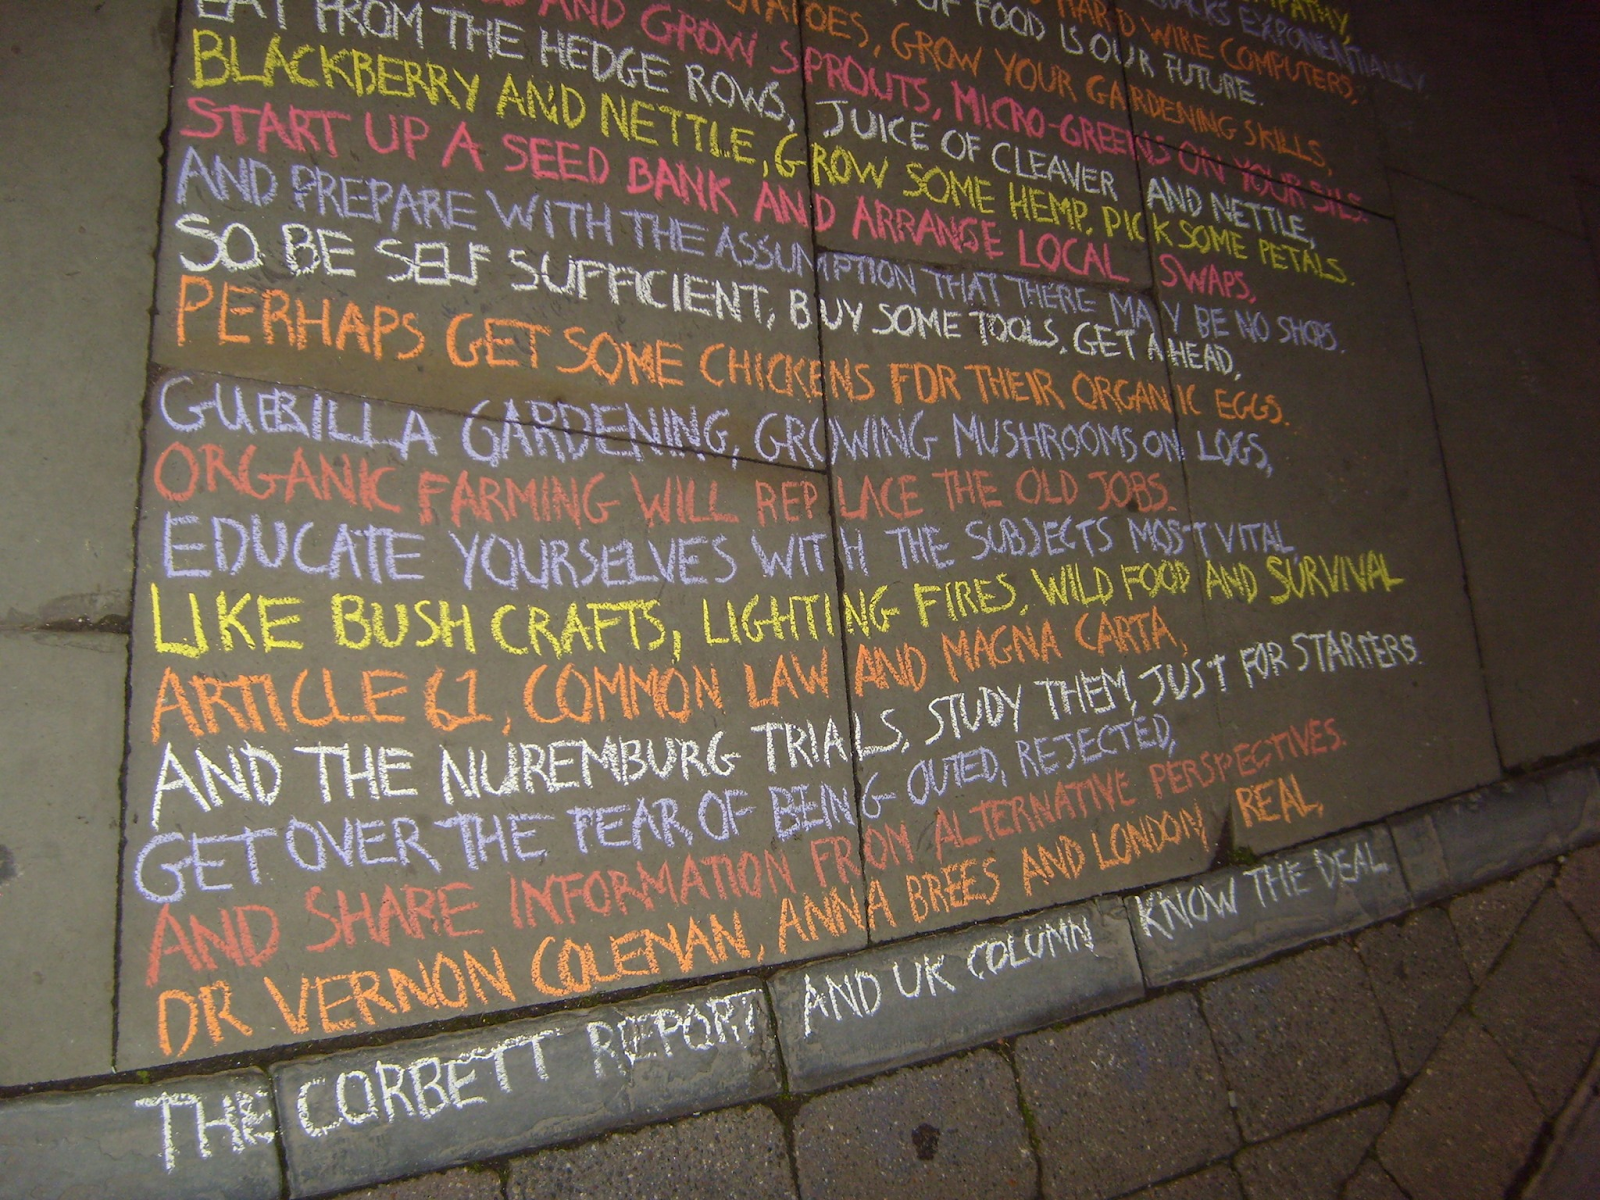 EMPATHY,
HACKS EXPONENTIALLY.
HARD WIRE COMPUTERS,
OF FOOD IS OUR FUTURE.
POTATOES, GROW YOUR GARDENING SKILLS,
AND GROW SPROUTS, MICRO-GREENS ON YOUR SILS.
EAT FROM THE HEDGE ROWS, JUICE OF CLEAVER AND NETTLE,
BLACKBERRY AND NETTLE, GROW SOME HEMP, PICK SOME PETALS.
START UP A SEED BANK AND ARRANGE LOCAL SWAPS,
AND PREPARE WITH THE ASSUMPTION THAT THERE MAY BE NO SHOPS.
SO BE SELF SUFFICIENT, BUY SOME TOOLS, GET AHEAD,
PERHAPS GET SOME CHICKENS FOR THEIR ORGANIC EGGS.
GUERILLA GARDENING, GROWING MUSHROOMS ON LOGS,
ORGANIC FARMING WILL REPLACE THE OLD JOBS.
EDUCATE YOURSELVES WITH THE SUBJECTS MOST VITAL
LIKE BUSH CRAFTS, LIGHTING FIRES, WILD FOOD AND SURVIVAL
ARTICLE 61, COMMON LAW AND MAGNA CARTA,
AND THE NUREMBURG TRIALS, STUDY THEM, JUST FOR STARTERS.
GET OVER THE FEAR OF BEING OUTED, REJECTED,
AND SHARE INFORMATION FROM ALTERNATIVE PERSPECTIVES.
DR VERNON COLEMAN, ANNA BREES AND LONDON REAL,
THE CORBETT REPORT AND UK COLUMN KNOW THE DEAL